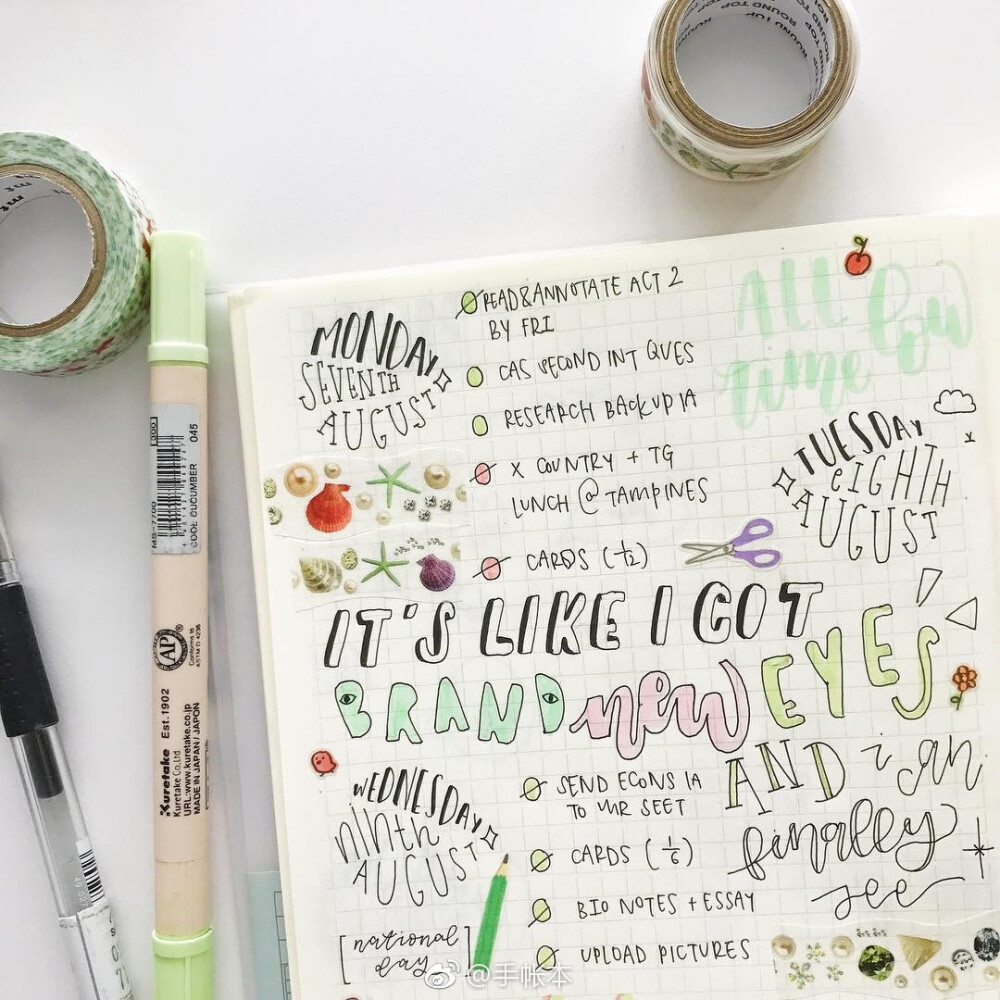 ROUND TOP
ROUND TOP
mt
MONDAY
SEVENTH
AUGUST
READ&ANNOTATE ACT 2
BY FRI
CAS SECOND INT QUES
RESEARCH BACKUP IA
X COUNTRY + TG
LUNCH @ TAMPINES
CARDS (1/2)
ALL YOU
TIME
TUESDAY
EIGHTH
AUGUST
IT'S LIKE I GOT
BRAND new EYES
AND i can
finally
see
WEDNESDAY
NINTH
AUGUST
[national
day]
SEND ECONS IA
TO MR SEET
CARDS (1/6)
BIO NOTES + ESSAY
UPLOAD PICTURES
MS-7700
CODE CUCUMBER 045
AP
Conforms to
ASTM D 4236
Kuretake Est.1902
Kuretake Co.Ltd.
URL:www.kuretake.co.jp
MADE IN JAPAN / JAPON
@手帐本